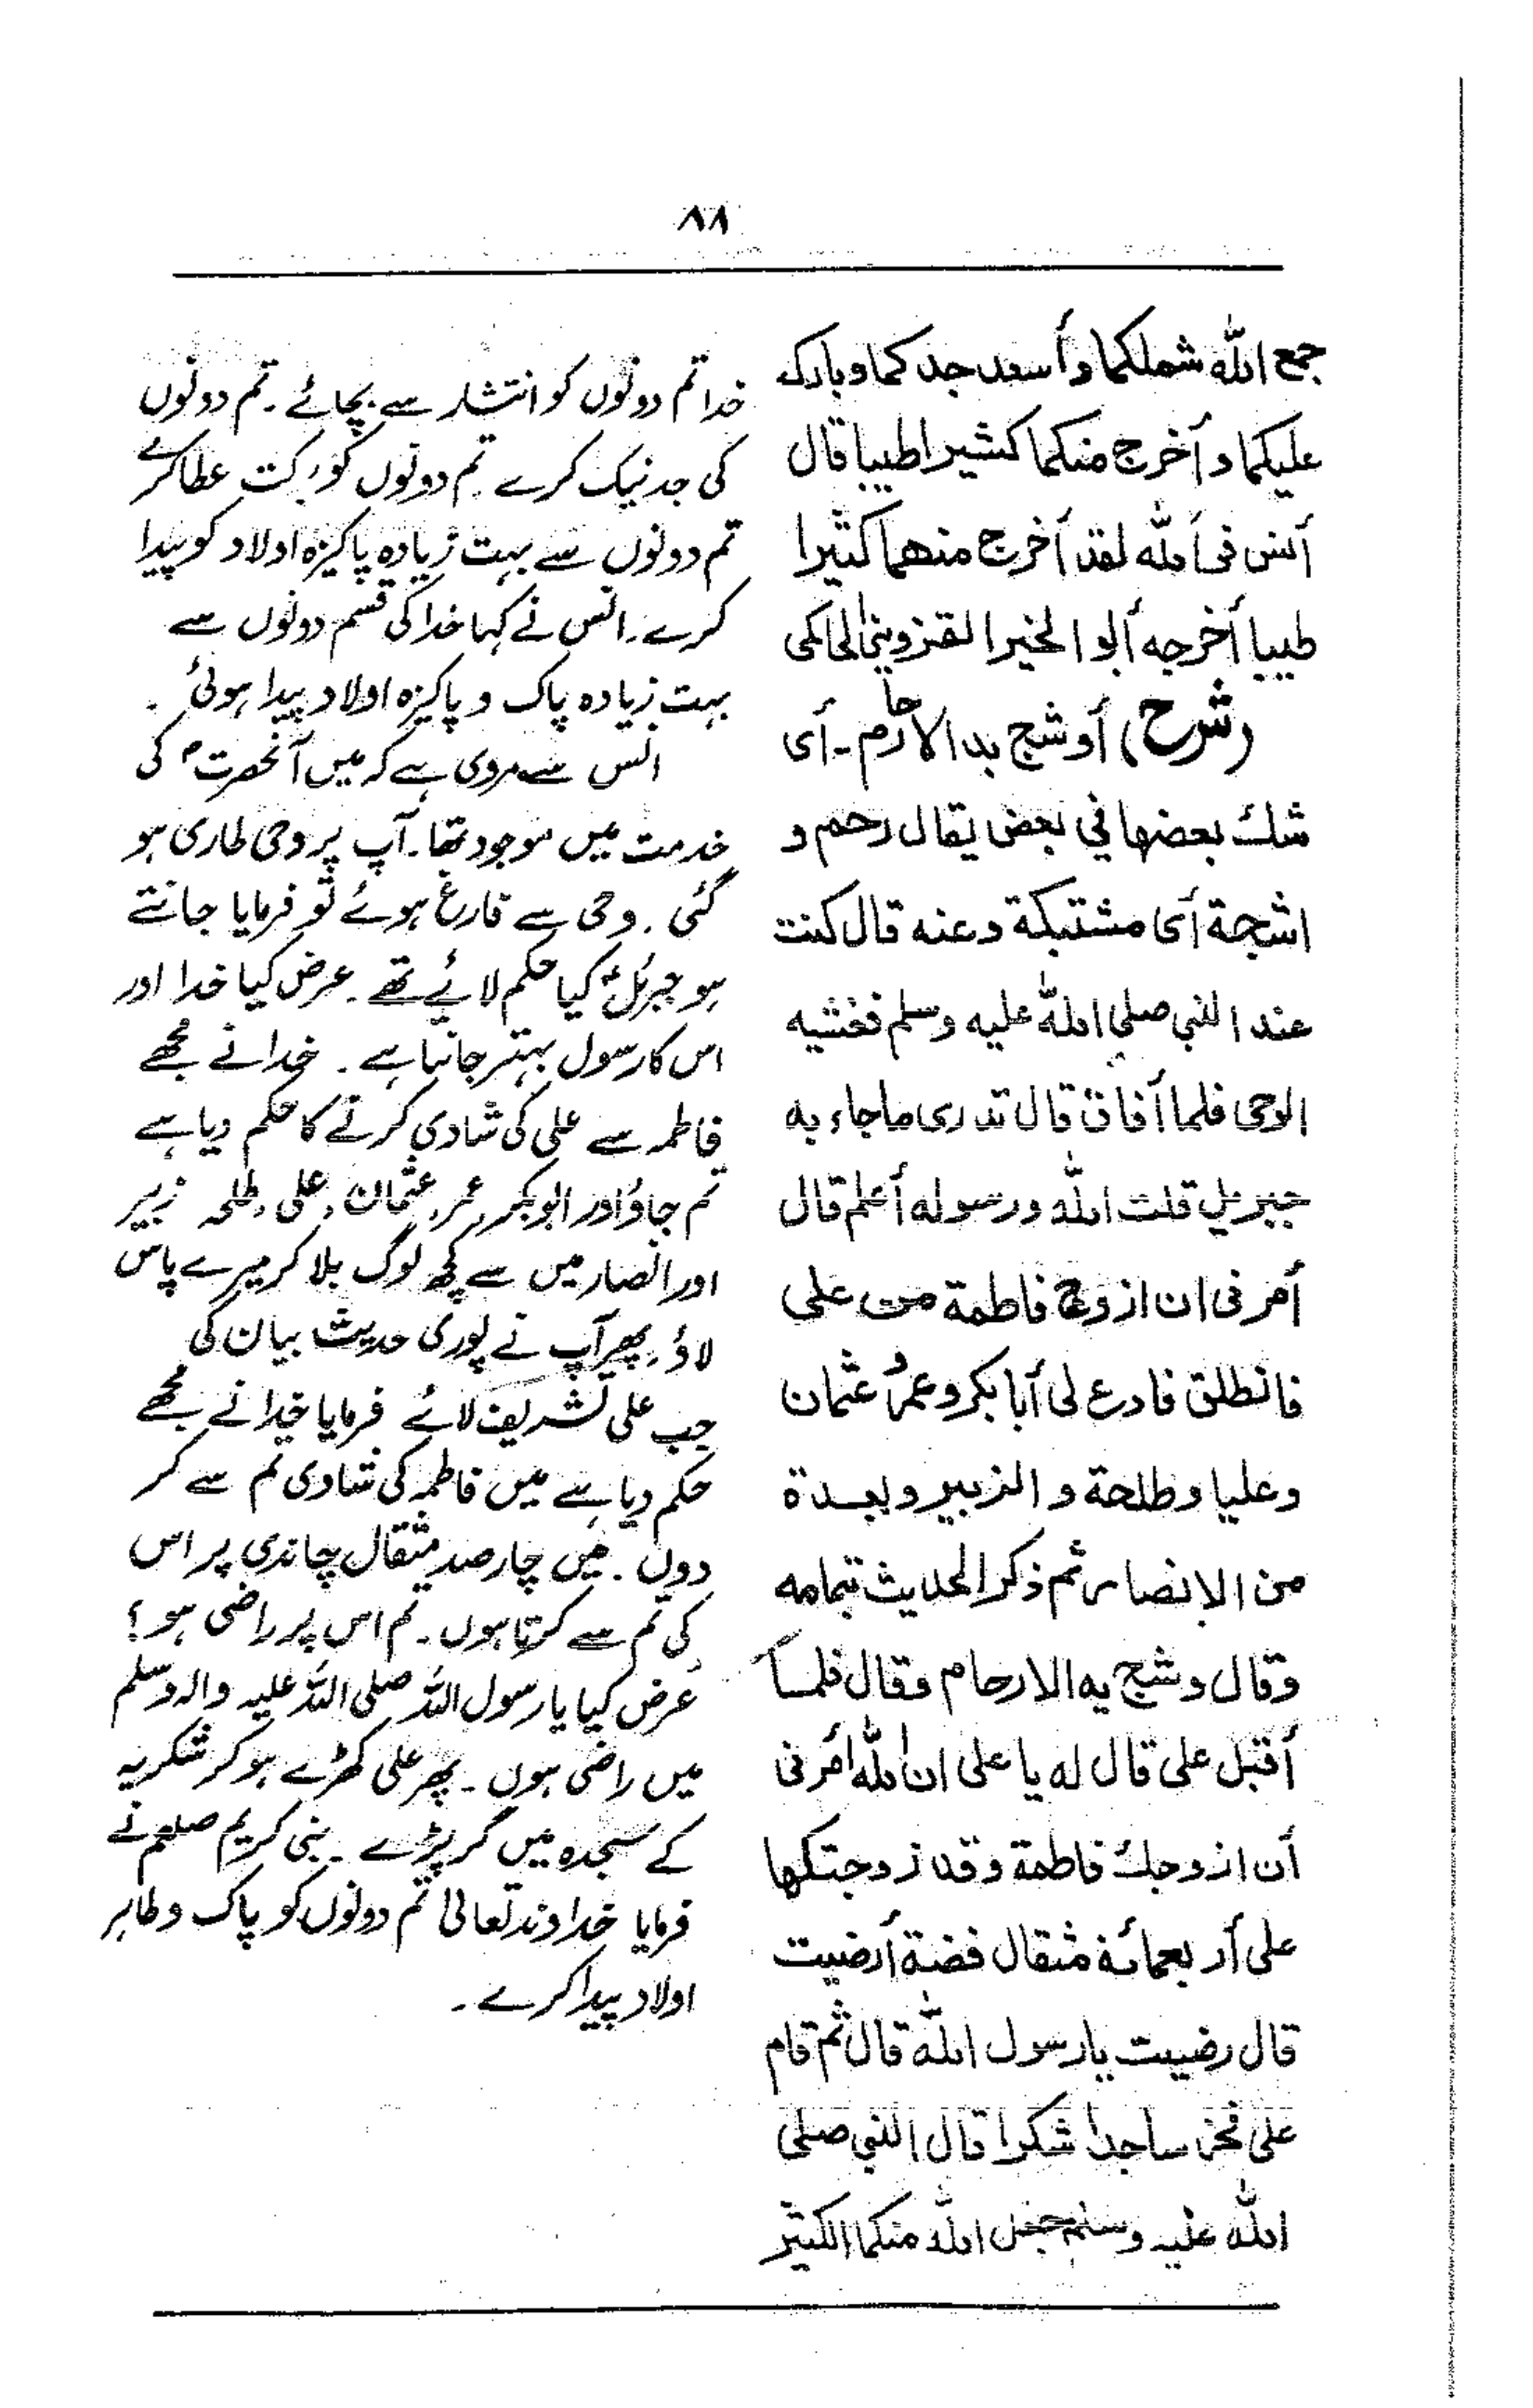 ۸۸
جمع الله شملكما وأسعد جدكما وبارك
عليكما وأخرج منكما كشيرا طيبا قال
أنس فى أدله لقد أخرج منهما كثيرا
طيبا أخرجه ألبو الخير القزوينى الحاكمى
(شرح) أوشج بد الارحام ۔ أى
شك بعضها في بعض يقال رحم و
اشجة أى مشتبكة وعنه قال كنت
عند النبي صلى الله عليه وسلم فغشيه
الوحى فلما أفاق قال تدرى ماجاء به
جبريل قلت الله ورسوله أعلم قال
أمرنى ان ازوج فاطمة من على
فانطلق فادع لى أبا بكر وعمر و عثمان
وعليا وطلحة والزبير وبعدة
من الانصار ثم ذكر الحديث بتمامه
وقال وشج به الارحام وقال فلما
أقبل على قال له يا على ان الله أمرنى
أن ازوجك فاطمة وقد زوجتكها
على أربعمائة مثقال فضة أرضيت
قال رضيت يارسول الله قال ثم قام
على فخر ساجدا شكرا قال النبي صلى
الله عليه وسلم جعل الله منكما الكثير
خدا تم دونوں کو انتشار سے بچائے ۔ تم دونوں
کی جد نیک کرے ۔ تم دونوں کو برکت عطا کرے
تم دونوں سے بہت زیادہ پاکیزہ اولاد کو پیدا
کرے ۔ انس نے کہا خدا کی قسم دونوں سے
بہت زیادہ پاک و پاکیزہ اولاد پیدا ہوئی ۔
انس سے مروی ہے کہ میں آنحضرتؐ کی
خدمت میں موجود تھا ۔ آپ پر وحی طاری ہو
گئی ۔ وحی سے فارغ ہوئے تو فرمایا جانتے
ہو جبرئلؑ کیا حکم لائے تھے ۔ عرض کیا خدا اور
اس کا رسول بہتر جانتا ہے ۔ خدا نے مجھے
فاطمہ سے علی کی شادی کرنے کا حکم دیا ہے
تم جاؤ اور ابوبکر، عمر، عثمان، علی، طلحہ زبیر
اور انصار میں سے کچھ لوگ بلا کر میرے پاس
لاؤ، پھر آپ نے پوری حدیث بیان کی
جب علی تشریف لائے فرمایا خدا نے مجھے
حکم دیا ہے میں فاطمہ کی شادی تم سے کر
دوں ۔ میں چار صد مثقال چاندی پر اس
کی تم سے کرتا ہوں ۔ تم اس پر راضی ہو؟
عرض کیا یا رسول اللہ صلی اللہ علیہ والہ وسلم
میں راضی ہوں ۔ پھر علی کھڑے ہو کر شکریہ
کے سجدہ میں گر پڑے ۔ نبی کریم صلعم نے
فرمایا خداوند تعالیٰ تم دونوں کو پاک و طاہر
اولاد پیدا کرے ۔